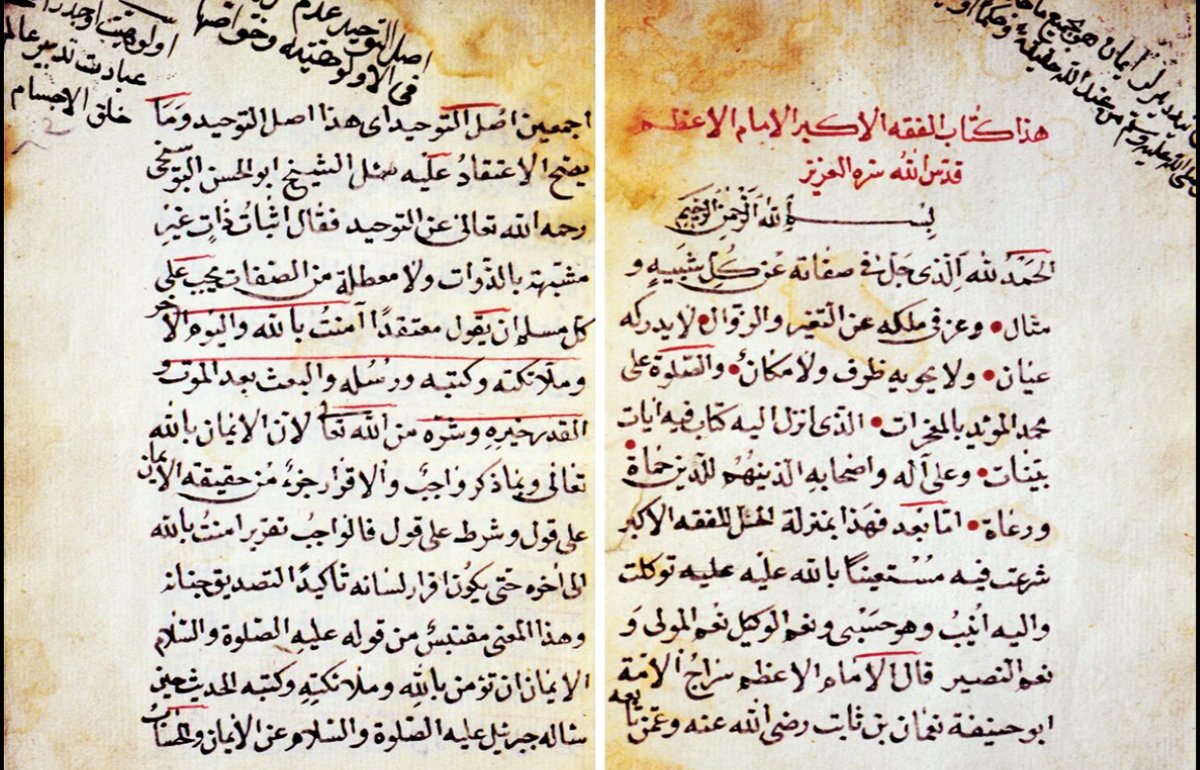 هذا كتاب الفقه الاكبر الامام الاعظم
قدس الله سره العزيز
بسم الله الرحمن الرحيم
الحمد لله الذى جل فى صفاته عن كل شبيه و
مثال • وعز فى ملكه عن التغير والزوال • لا يدركه
عيان • ولا يحويه ظرف ولا مكان • والصلوة على
محمد المؤيد بالمعجزات • الذى انزل اليه كتاب فيه ايات
بينات • وعلى آله واصحابه الذينهم للدين حماة •
ورعاة • اما بعد فهذا بمنزلة الحل للفقه الاكبر
شرعت فيه مستعينا بالله عليه عليه توكلت
واليه انيب وهو حسبى ونعم الوكيل نعم المولى و
نعم النصير قال الامام الاعظم سراج الامة
ابو حنيفة نعمان بن ثابت رضى الله عنه وعمن تابعه
اصل التوحيد عدم
فى الالوهيته وخواصها
عبادت تدبير عالم
خلق الاجسام
اجمعين اصل التوحيد اى هذا اصل التوحيد وما
يصح الاعتقاد عليه سئل الشيخ ابو الحسن البوسنجى
رحمه الله تعالى عن التوحيد فقال اثبات ذات غير
مشبهة بالذوات ولا معطلة من الصفات يجب على
كل مسلم ان يقول معتقدا آمنت بالله واليوم الآخر
وملائكته وكتبه ورسله والبعث بعد الموت و
القدر خيره وشره من الله تعا لان الايمان بالله
تعالى وبما ذكر واجب والاقرار جزء من حقيقه الايمان
على قول وشرط على قول فالواجب تقرير امنت بالله
الى اخره حتى يكون اقرار لسانه تأكيدا لتصديق جنانه
وهذا المعنى مقتبس من قوله عليه الصلوة والسلام
الايمان ان تؤمن بالله وملائكته وكتبه الحديث حين
ساله جبرئيل عليه الصلوة والسلام عن الايمان